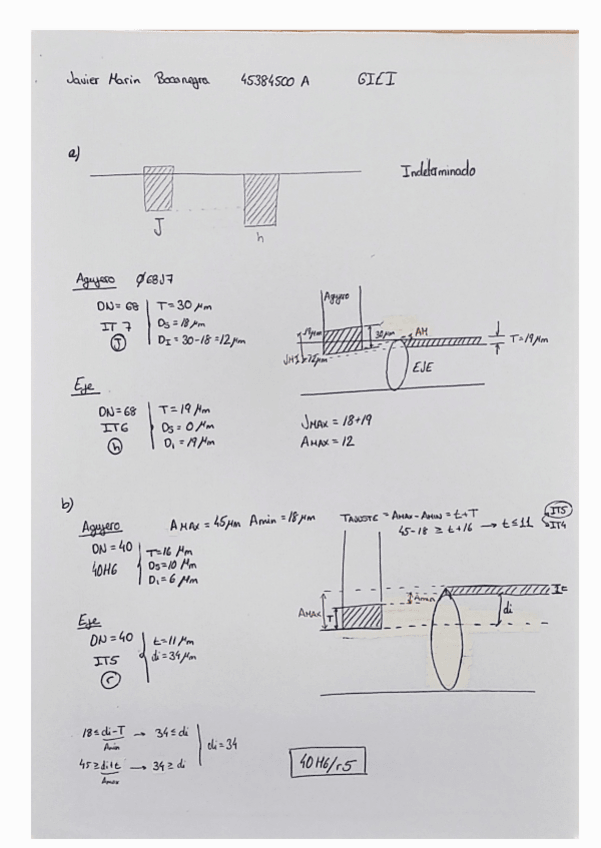 Javier Marin Bocanegra 45384500 A GIEI
a)
Indetaminado
J
h
Agujero Ø68J7
DN = 68
IT 7
J
T = 30 μm
Ds = 18 μm
DI = 30-18 = 12 μm
Agujero
30μm
AM
EJE
T = 19 μm
Eje
DN = 68
IT6
h
T = 19 μm
Ds = 0 μm
Di = 19 μm
JMAX = 18+19
AMAX = 12
b)
Agujero
AMAX = 45μm Amin = 18 μm
TAJUSTE = AMAX - AMIN = t + T
45-18 ≥ t+16 → t ≤ 11
IT5
IT4
DN = 40
40H6
T = 16 μm
Ds = 10 μm
Di = 6 μm
AMAX
T
Amin
di
Eje
DN = 40
IT5
r
t = 11 μm
di = 34 μm
18 ≤ di-T → 34 ≤ di
Amin
45 ≥ di+t → 34 ≥ di
Amax
di = 34
40H6/r5